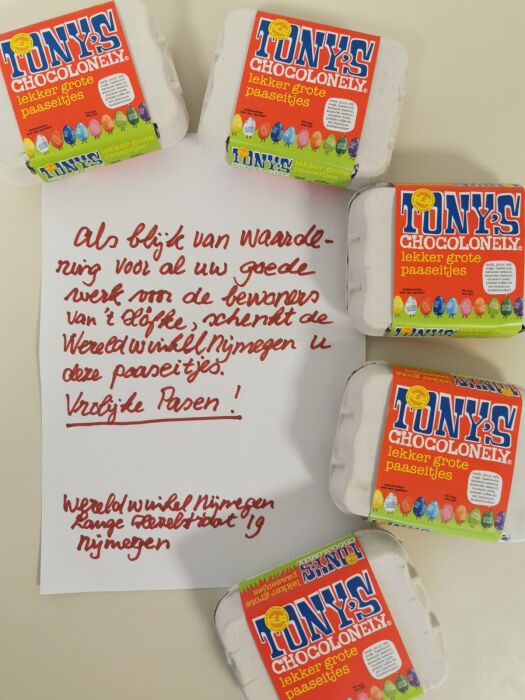 TONY'S
CHOCOLONELY
lekker grote
paaseitjes
TONY'S
lekker grote
paaseitjes
TONY'S
CHOCOLONELY
lekker grote
paaseitjes
TONY'S
lekker grote
paaseitjes
TONY'S
CHOCOLONELY
lekker grote
paaseitjes
TONY'S
CHOCOLONELY
lekker grote
paaseitjes
TONY'S
lekker grote
paaseitjes
CHOCOLONELY
TONY'S
CHOCOLONELY
lekker grote
paaseitjes
Als blijk van waarde-
ring voor al uw goede
werk voor de bewoners
van 't Höfke, schenkt de
Wereldwinkel Nijmegen u
deze paaseitjes.
Vrolijke Pasen!
Wereldwinkel Nijmegen
Lange Hezelstraat 19
Nijmegen